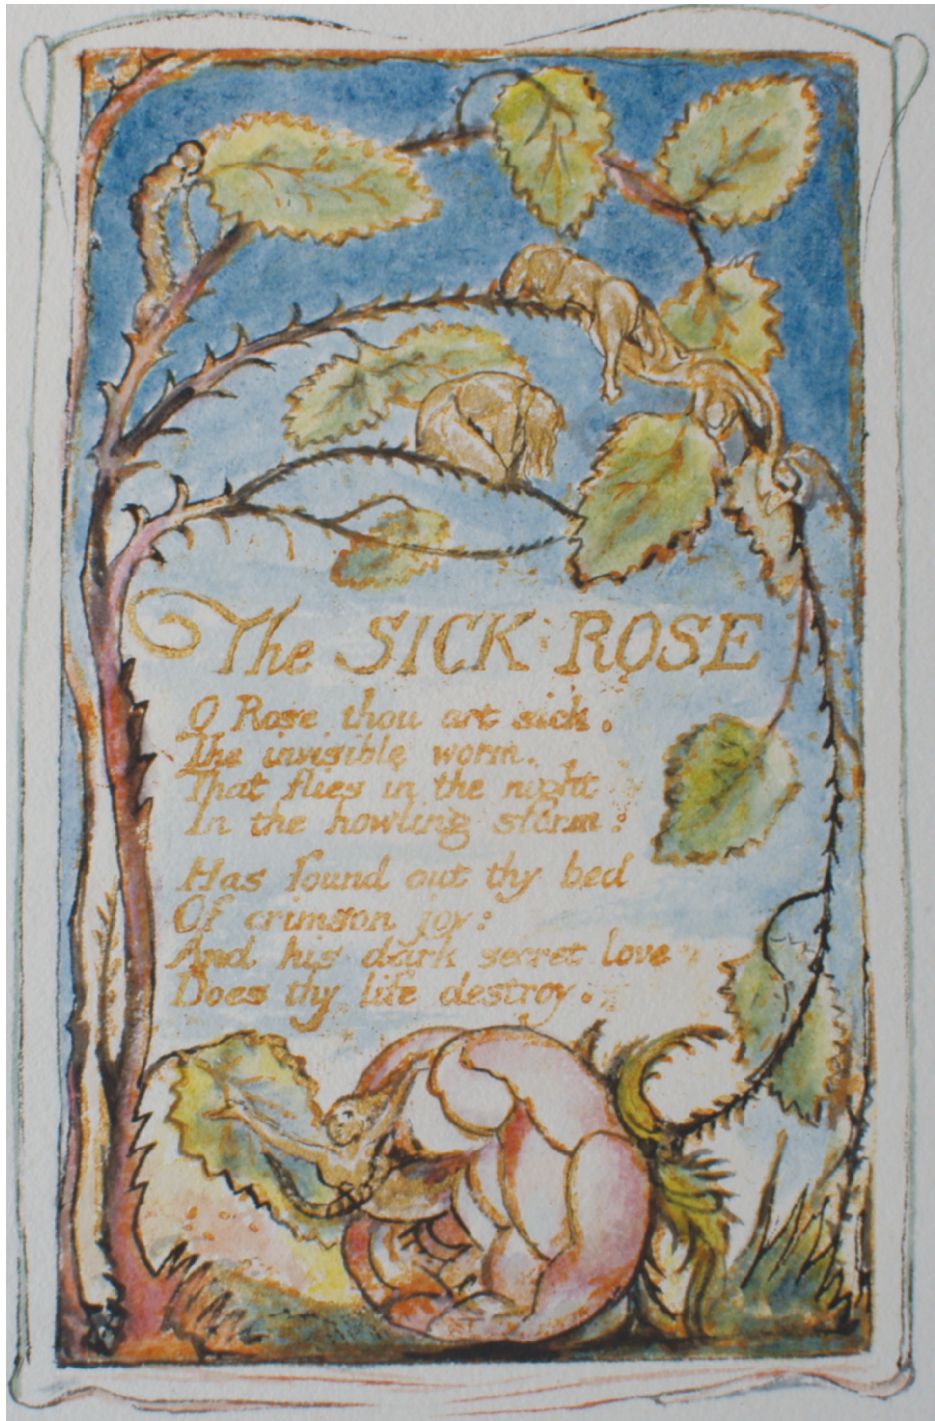 The SICK ROSE
O Rose thou art sick.
The invisible worm.
That flies in the night
In the howling storm:
Has found out thy bed
Of crimson joy:
And his dark secret love
Does thy life destroy.